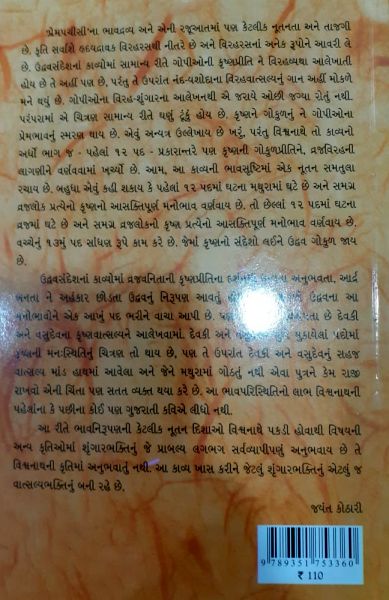 'પ્રેમપચીસી'ના ભાવદ્રવ્ય અને એની રજૂઆતમાં પણ કેટલીક નૂતનતા અને તાજગી
છે. કૃતિ સર્વાંશે હૃદયદ્રાવક વિરહરસથી નીતરે છે અને વિરહરસનાં અનેક રૂપોને આવરી લે
છે. ઉદ્ધવસંદેશનાં કાવ્યોમાં સામાન્ય રીતે ગોપીઓની કૃષ્ણપ્રીતિ ને વિરહવ્યથા આલેખાતી
હોય છે તે અહીં પણ છે, પરંતુ તે ઉપરાંત નંદ-યશોદાના વિરહવાત્સલ્યનું ગાન અહીં મોકળે
મને થયું છે. ગોપીઓના વિરહ-શૃંગારના આલેખનથી એ જરાયે ઓછી જગ્યા રોતું નથી.
પરંપરામાં એ ચિત્રણ સામાન્ય રીતે થયું ટૂંકું હોય છે. કૃષ્ણને ગોકુળનું ને ગોપીઓના
પ્રેમભાવનું સ્મરણ થાય છે. એવું અન્યત્ર ઉલ્લેખાય છે ખરું, પરંતુ વિશ્વનાથે તો કાવ્યનો
અર્ધો ભાગ જ - પહેલાં ૧૨ પદ - પ્રકારાન્તરે પણ કૃષ્ણની ગોકુળપ્રીતિને, વ્રજવિરહની
લાગણીને વર્ણવવામાં ખર્ચ્યો છે. આમ, આ કાવ્યની ભાવસૃષ્ટિમાં એક નૂતન સમતુલા
રચાય છે. બહુધા એવું કહી શકાય કે પહેલાં ૧૨ પદમાં ઘટના મથુરામાં ઘટે છે અને સમગ્ર
વ્રજલોક પ્રત્યેનો કૃષ્ણનો આસક્તિપૂર્ણ મનોભાવ વર્ણવાય છે. તો છેલ્લાં ૧૨ પદમાં ઘટના
વ્રજમાં ઘટે છે અને સમગ્ર વ્રજલોકનો કૃષ્ણ પ્રત્યેનો આસક્તિપૂર્ણ મનોભાવ વર્ણવાય છે.
વચ્ચેનું ૧૩મું પદ સાંધણ રૂપે કામ કરે છે. જેમાં કૃષ્ણનો સંદેશો લઈને ઉદ્ધવ ગોકુળ જાય
છે.
ઉદ્ધવસંદેશનાં કાવ્યોમાં વ્રજવનિતાની કૃષ્ણપ્રીતિના અનુભવતા, આર્દ્ર
બનતા ને અહંકાર છોડતા ઉદ્ધવનું નિરૂપણ આવતું ઉદ્ધવના આ
મનોભાવોને એક આખું પદ ભરીને વાચા આપી છે. પણ છે દેવકી
અને વસુદેવના કૃષ્ણવાત્સલ્યને આલેખવામાં. દેવકી અને મુકાયેલાં પદોમાં
કૃષ્ણની મનઃસ્થિતિનું ચિત્રણ તો થાય છે, પણ તે ઉપરાંત દેવકી અને વસુદેવનું સહજ
વાત્સલ્ય માંડ હાથમાં આવેલા અને જેને મથુરામાં ગોઠતું નથી એવા પુત્રને કેમ રાજી
રાખવો એની ચિંતા પણ સતત વ્યક્ત થયા કરે છે. આ ભાવપરિસ્થિતિનો લાભ વિશ્વનાથની
પહેલાંના કે પછીના કોઈ પણ ગુજરાતી કવિએ લીધો નથી.
આ રીતે ભાવનિરૂપણની કેટલીક નૂતન દિશાઓ વિશ્વનાથે પકડી હોવાથી વિષયની
અન્ય કૃતિઓમાં શૃંગારભક્તિનું જે પ્રાબલ્ય લગભગ સર્વવ્યાપીપણું અનુભવાય છે તે
વિશ્વનાથની કૃતિમાં અનુભવાતું નથી. આ કાવ્ય ખાસ કરીને જેટલું શૃંગારભક્તિનું એટલું જ
વાત્સલ્યભક્તિનું બની રહે છે.
જયંત કોઠારી
9 789351 753360
₹ 110